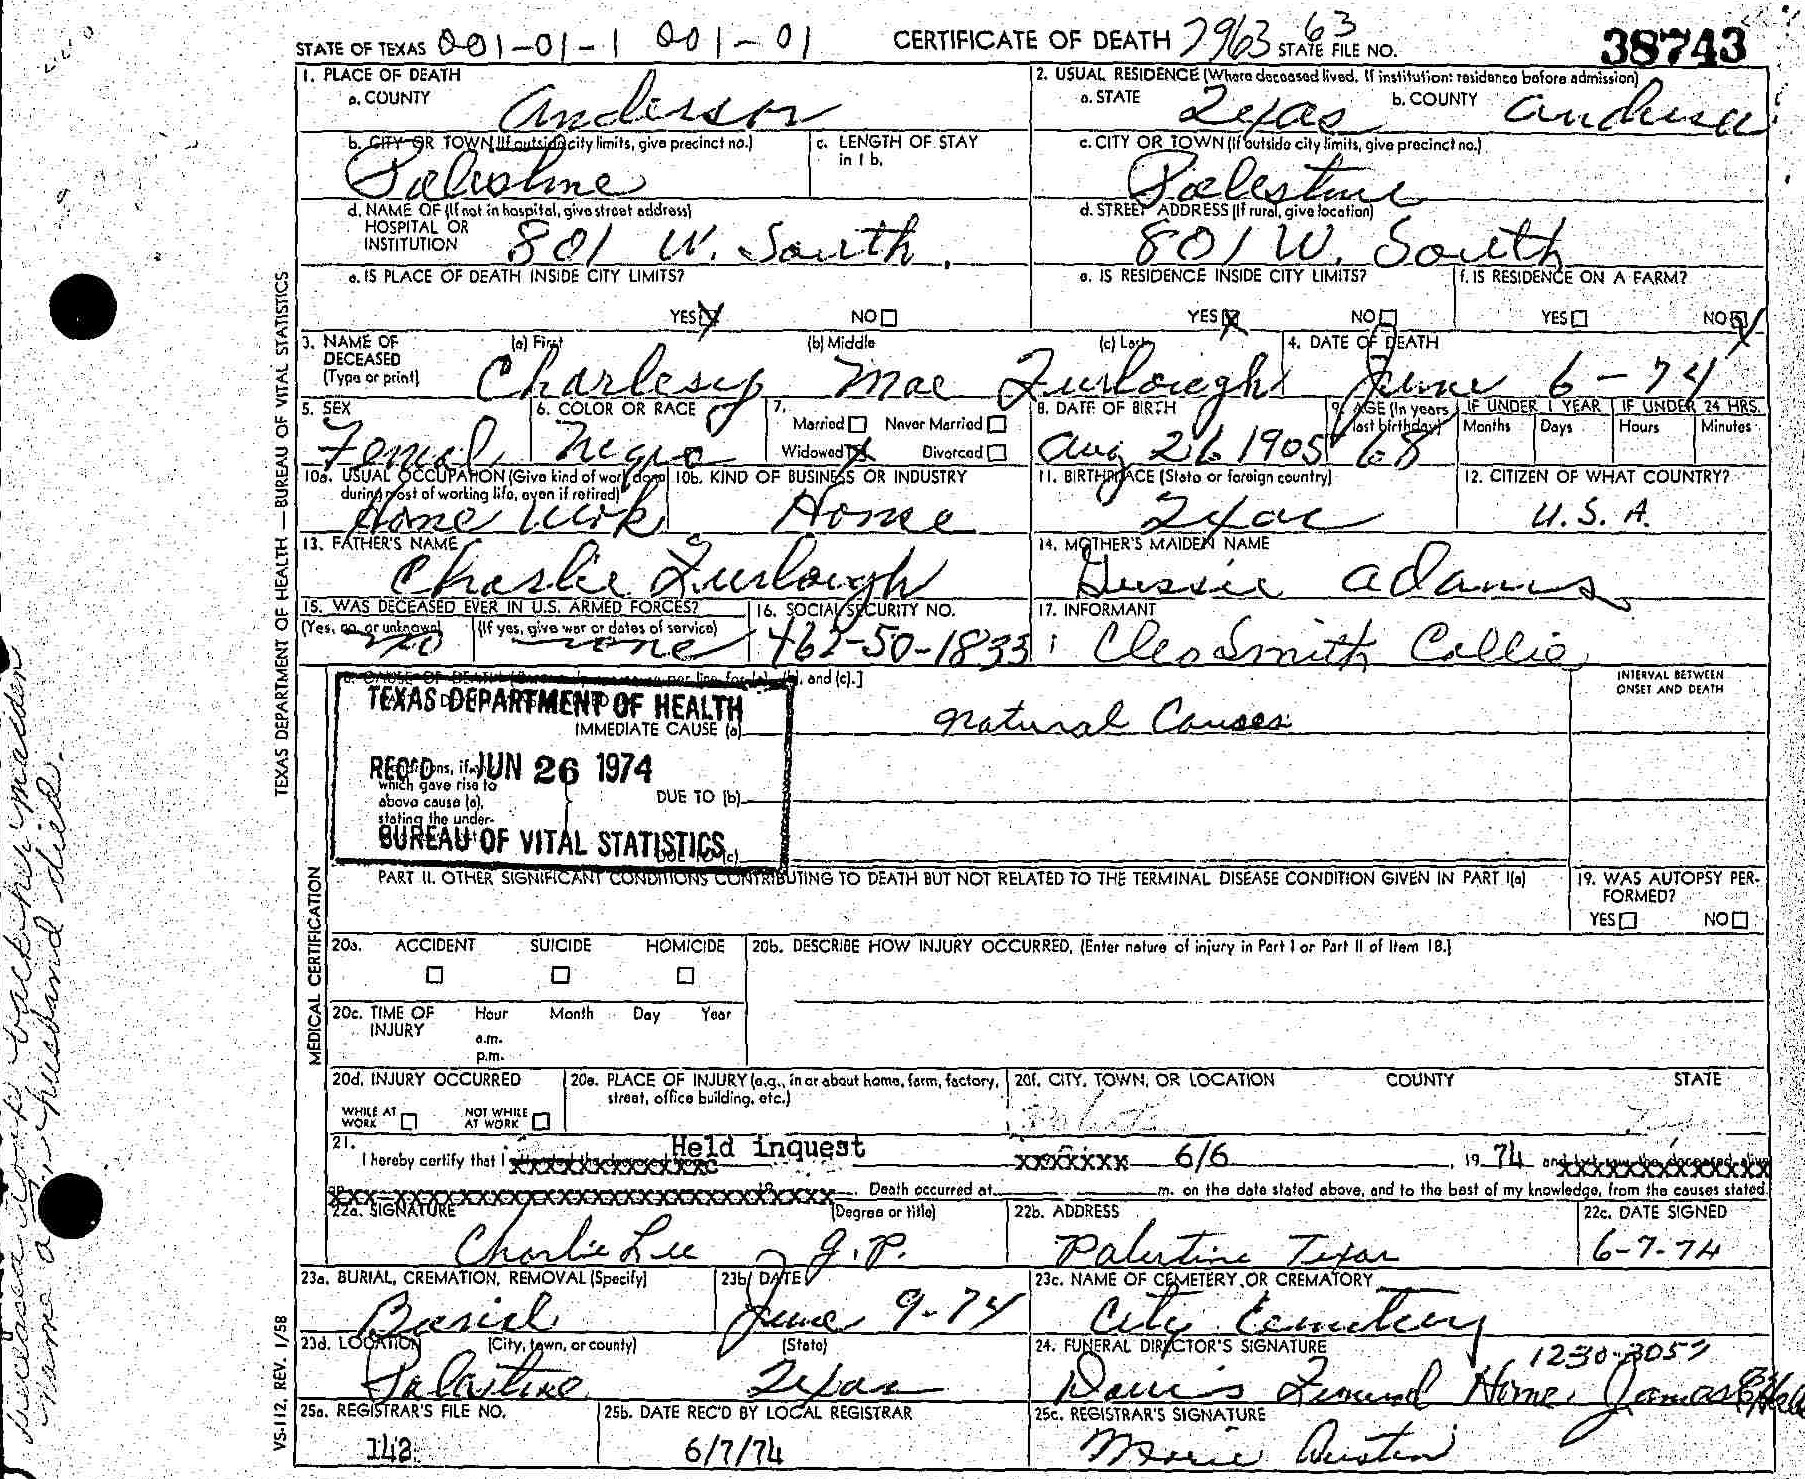 STATE OF TEXAS 001-01-1 001-01 CERTIFICATE OF DEATH 7963 63 STATE FILE NO. 38743
1. PLACE OF DEATH
a. COUNTY Anderson
2. USUAL RESIDENCE (Where deceased lived. If institution: residence before admission)
a. STATE Texas b. COUNTY Anderson
b. CITY OR TOWN (If outside city limits, give precinct no.) Palestine
c. LENGTH OF STAY in 1b.
c. CITY OR TOWN (If outside city limits, give precinct no.) Palestine
d. NAME OF (If not in hospital, give street address) HOSPITAL OR INSTITUTION 801 W. South.
d. STREET ADDRESS (If rural, give location) 801 W. South
e. IS PLACE OF DEATH INSIDE CITY LIMITS?
YES X NO
e. IS RESIDENCE INSIDE CITY LIMITS?
YES X NO
f. IS RESIDENCE ON A FARM?
YES NO X
3. NAME OF DECEASED (Type or print)
(a) First (b) Middle (c) Last
Mae Furlough
4. DATE OF DEATH June 6-74
5. SEX Femal
6. COLOR OR RACE Negro
7. Married Never Married
Widowed X Divorced
8. DATE OF BIRTH Aug 26 1905
9. AGE (In years last birthday) 68
IF UNDER 1 YEAR Months Days
IF UNDER 24 HRS. Hours Minutes
10a. USUAL OCCUPATION (Give kind of work done during most of working life, even if retired) Home Work
10b. KIND OF BUSINESS OR INDUSTRY Home
11. BIRTHPLACE (State or foreign country) Texas
12. CITIZEN OF WHAT COUNTRY? U.S.A.
13. FATHER'S NAME Charlie Furlough
14. MOTHER'S MAIDEN NAME Gussie Adams
15. WAS DECEASED EVER IN U.S. ARMED FORCES?
(Yes, no, or unknown) no (If yes, give war or dates of service) none
16. SOCIAL SECURITY NO. 462-50-1833
17. INFORMANT Cleo Smith Collie
and (c).]
INTERVAL BETWEEN ONSET AND DEATH
TEXAS DEPARTMENT OF HEALTH
IMMEDIATE CAUSE (a) Natural Causes
REC'D JUN 26 1974
which gave rise to
above cause (a),
stating the under-
DUE TO (b)
BUREAU OF VITAL STATISTICS
PART II. OTHER SIGNIFICANT CONDITIONS CONTRIBUTING TO DEATH BUT NOT RELATED TO THE TERMINAL DISEASE CONDITION GIVEN IN PART I(a)
19. WAS AUTOPSY PERFORMED?
YES NO
20a. ACCIDENT SUICIDE HOMICIDE
20b. DESCRIBE HOW INJURY OCCURRED. (Enter nature of injury in Part I or Part II of Item 18.)
20c. TIME OF INJURY Hour Month Day Year
a.m.
p.m.
20d. INJURY OCCURRED
WHILE AT WORK NOT WHILE AT WORK
20e. PLACE OF INJURY (e.g., in or about home, farm, factory, street, office building, etc.)
20f. CITY, TOWN, OR LOCATION COUNTY STATE
21. Held inquest
I hereby certify that I xxxxxxx 6/6, 1974 and
Death occurred at m. on the date stated above, and to the best of my knowledge, from the causes stated.
22a. SIGNATURE (Degree or title) Charlie Lee J.P.
22b. ADDRESS Palestine Texas
22c. DATE SIGNED 6-7-74
23a. BURIAL, CREMATION, REMOVAL (Specify) Burial
23b. DATE June 9-74
23c. NAME OF CEMETERY OR CREMATORY City Cemetery
23d. LOCATION (City, town, or county) (State) Palestine Texas
24. FUNERAL DIRECTOR'S SIGNATURE 1230-3057
Funeral Home. James
25a. REGISTRAR'S FILE NO. 142
25b. DATE REC'D BY LOCAL REGISTRAR 6/7/74
25c. REGISTRAR'S SIGNATURE Marie Austin
TEXAS DEPARTMENT OF HEALTH — BUREAU OF VITAL STATISTICS
MEDICAL CERTIFICATION
VS-112, REV. 1/58
Deceased took back her maiden
name after husband died.